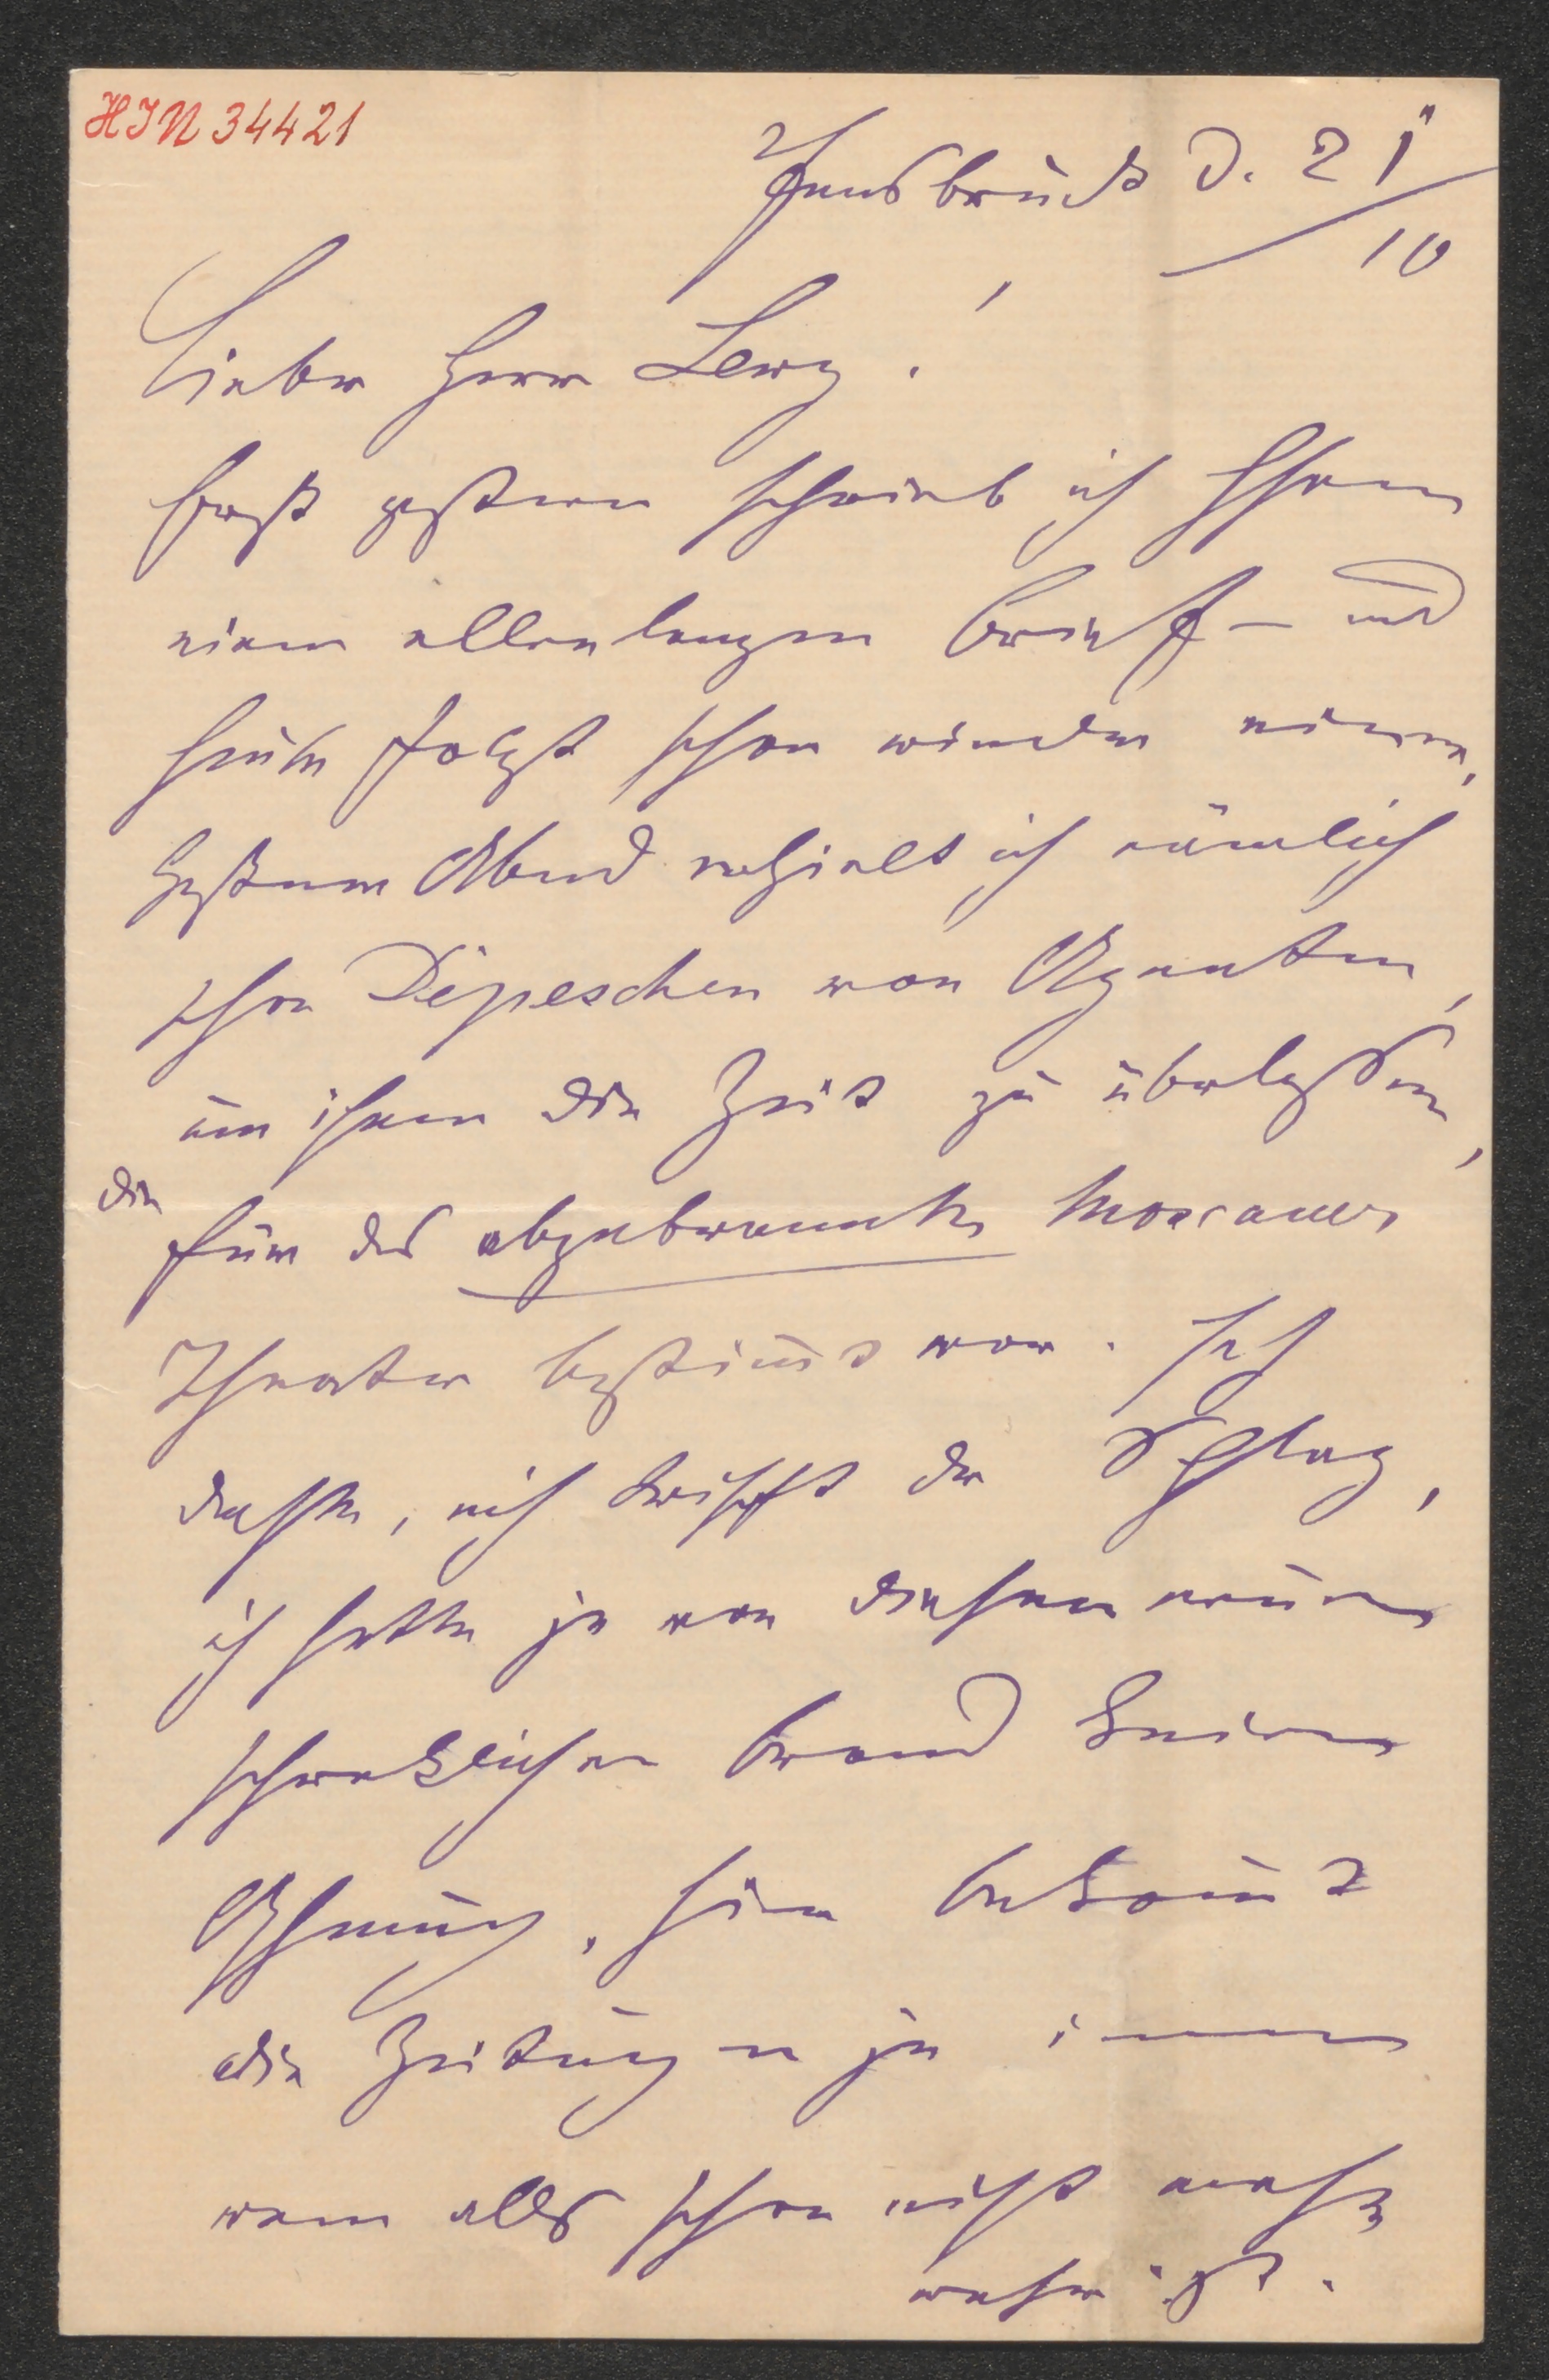 HIN 34421
Innsbruck d. 21
/10
Lieber Herr Lewy!
Erst gestern schrieb ich Ihnen
einen ellenlangen Brief – und
heute folgt schon wieder einer,
Gestern Abend erhielt ich nämlich
schon Dépeschen von Agenten,
um ihnen die Zeit zu überlassen,
die
für das abgebrannte Moscauer
Theater bestimt war. Ich
dachte, mich trifft der Schlag,
ich hatte ja von diesem neuen
schreklichen Brand keine
Ahnung, hier bekomt
die Zeitungen ja immer
wenn alles schon nicht mehr
wahr ist.